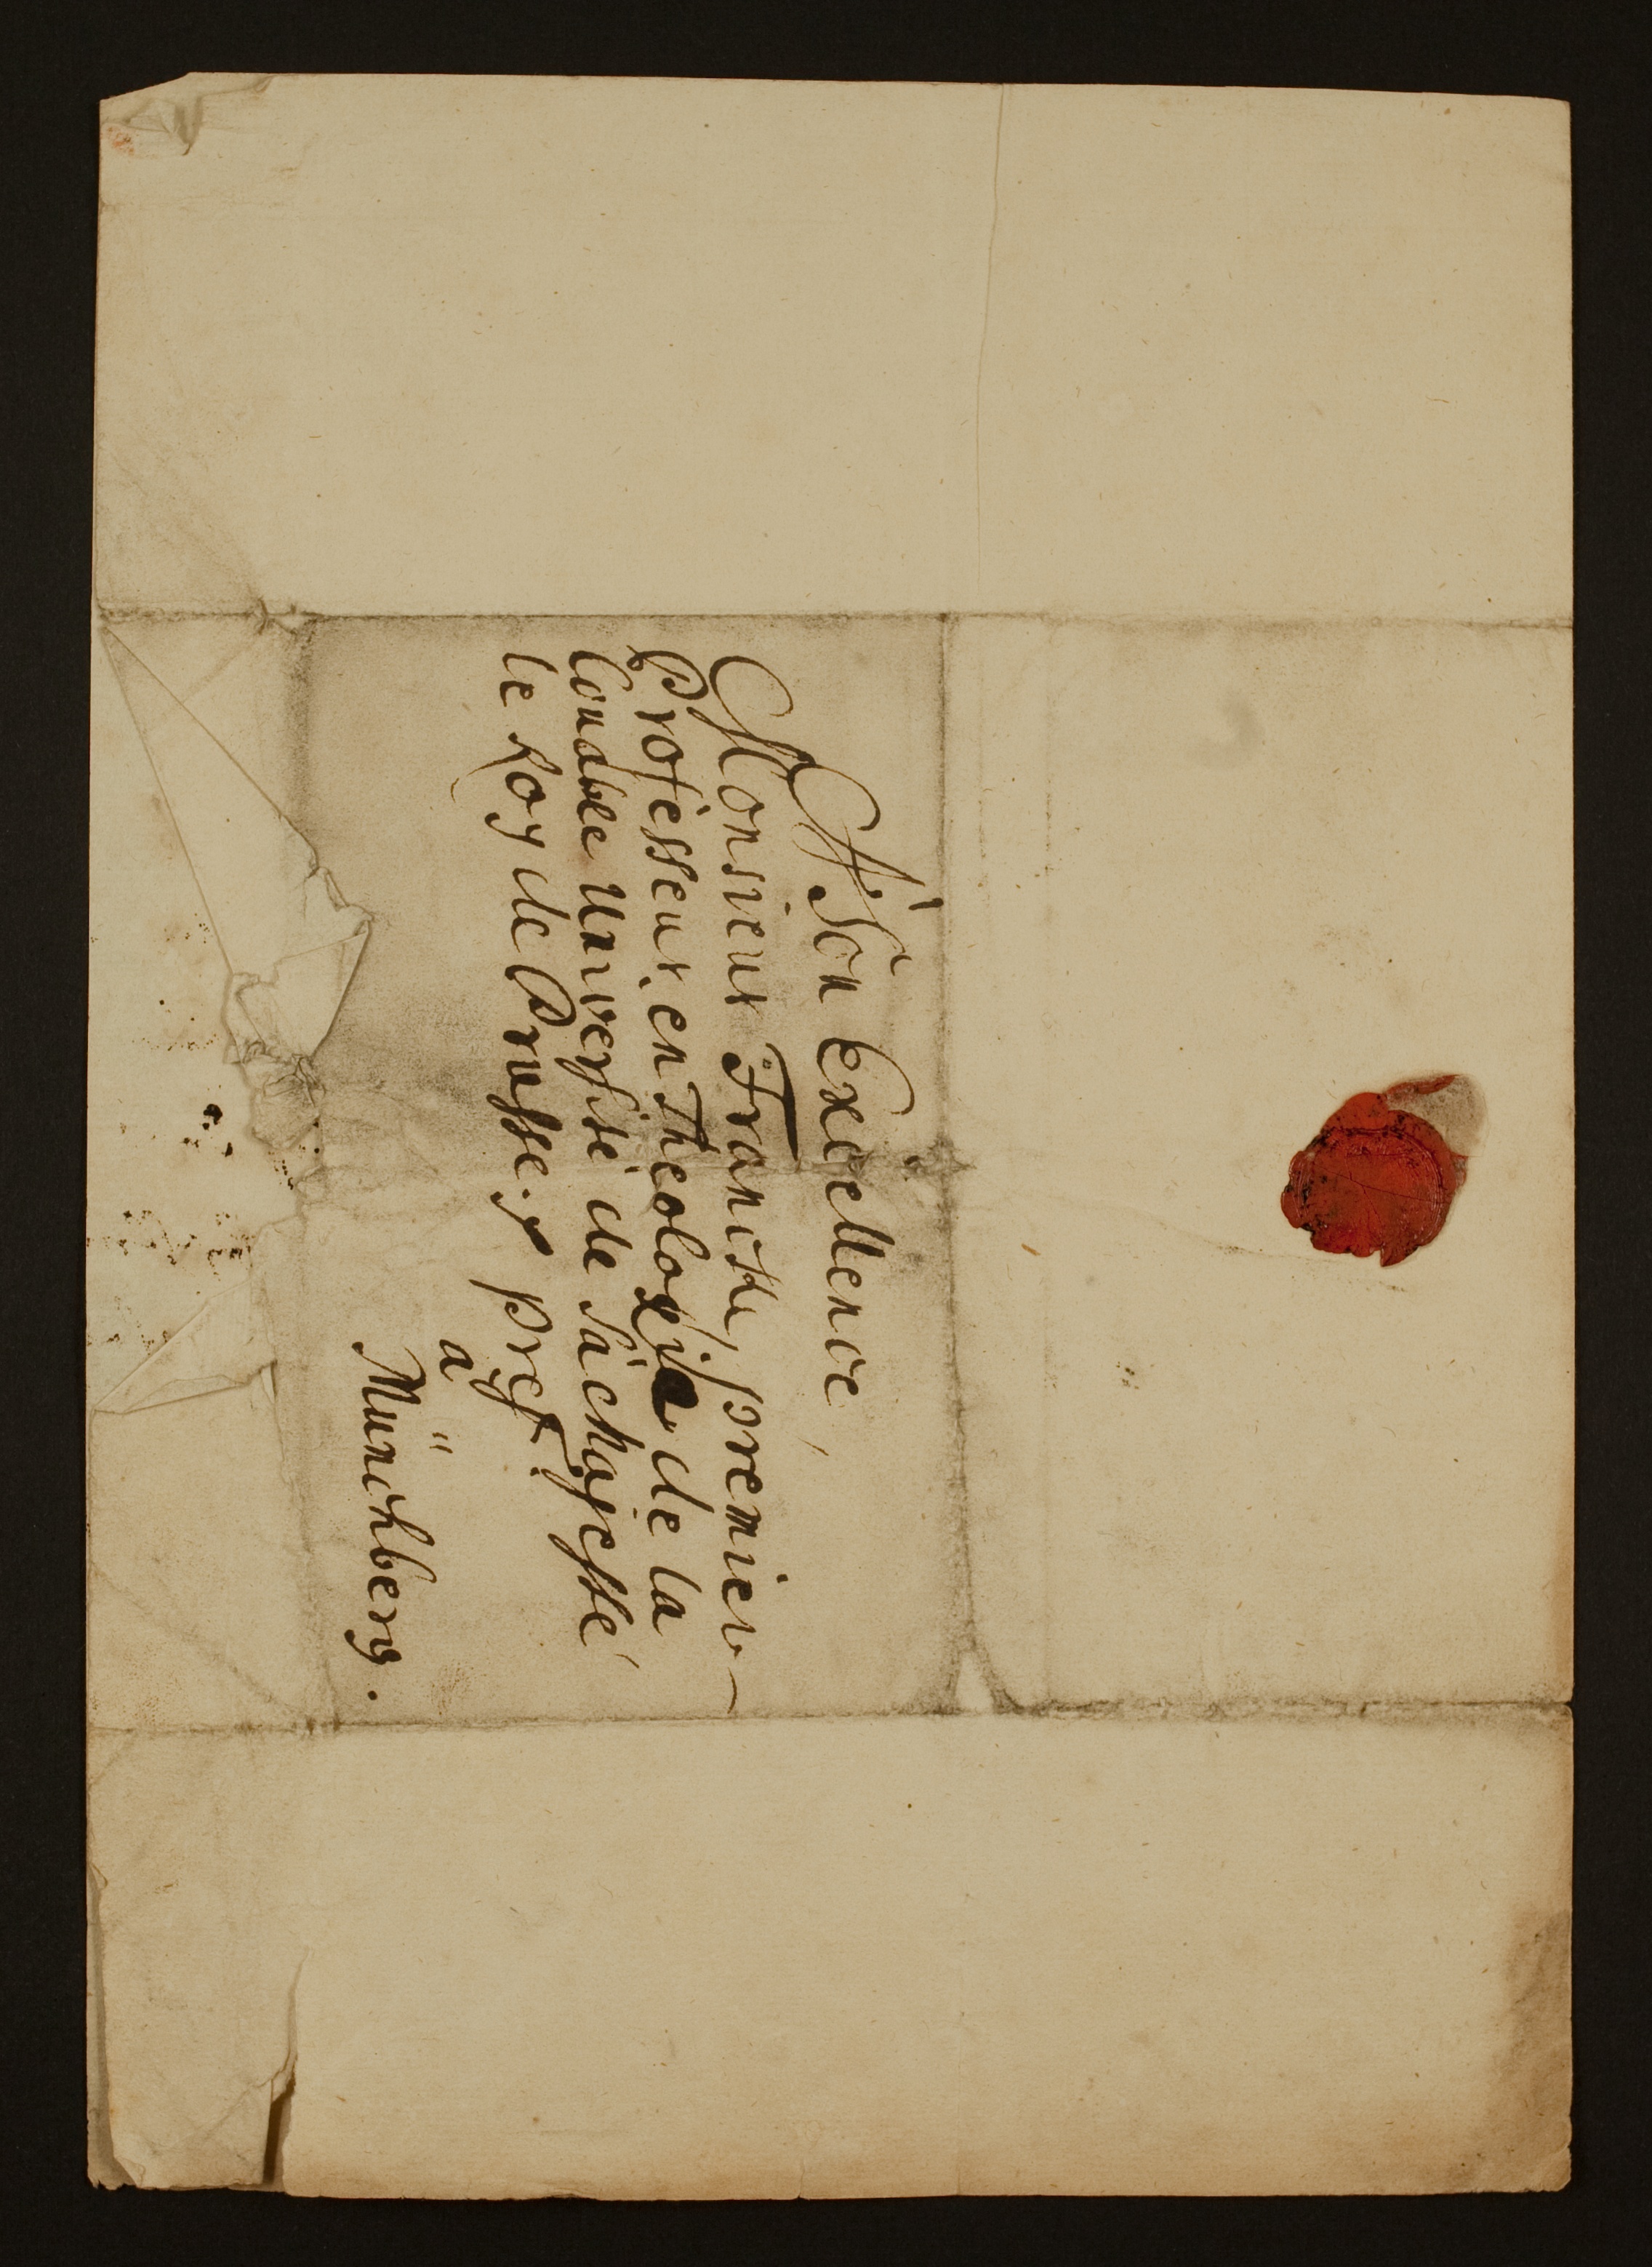 A Son Excellence
Monsieur Francke, premier
Professeur en Theologie de la
Louable Université de Sa Majesté
le Roy de Prusse. prest.
a
Münchberg.